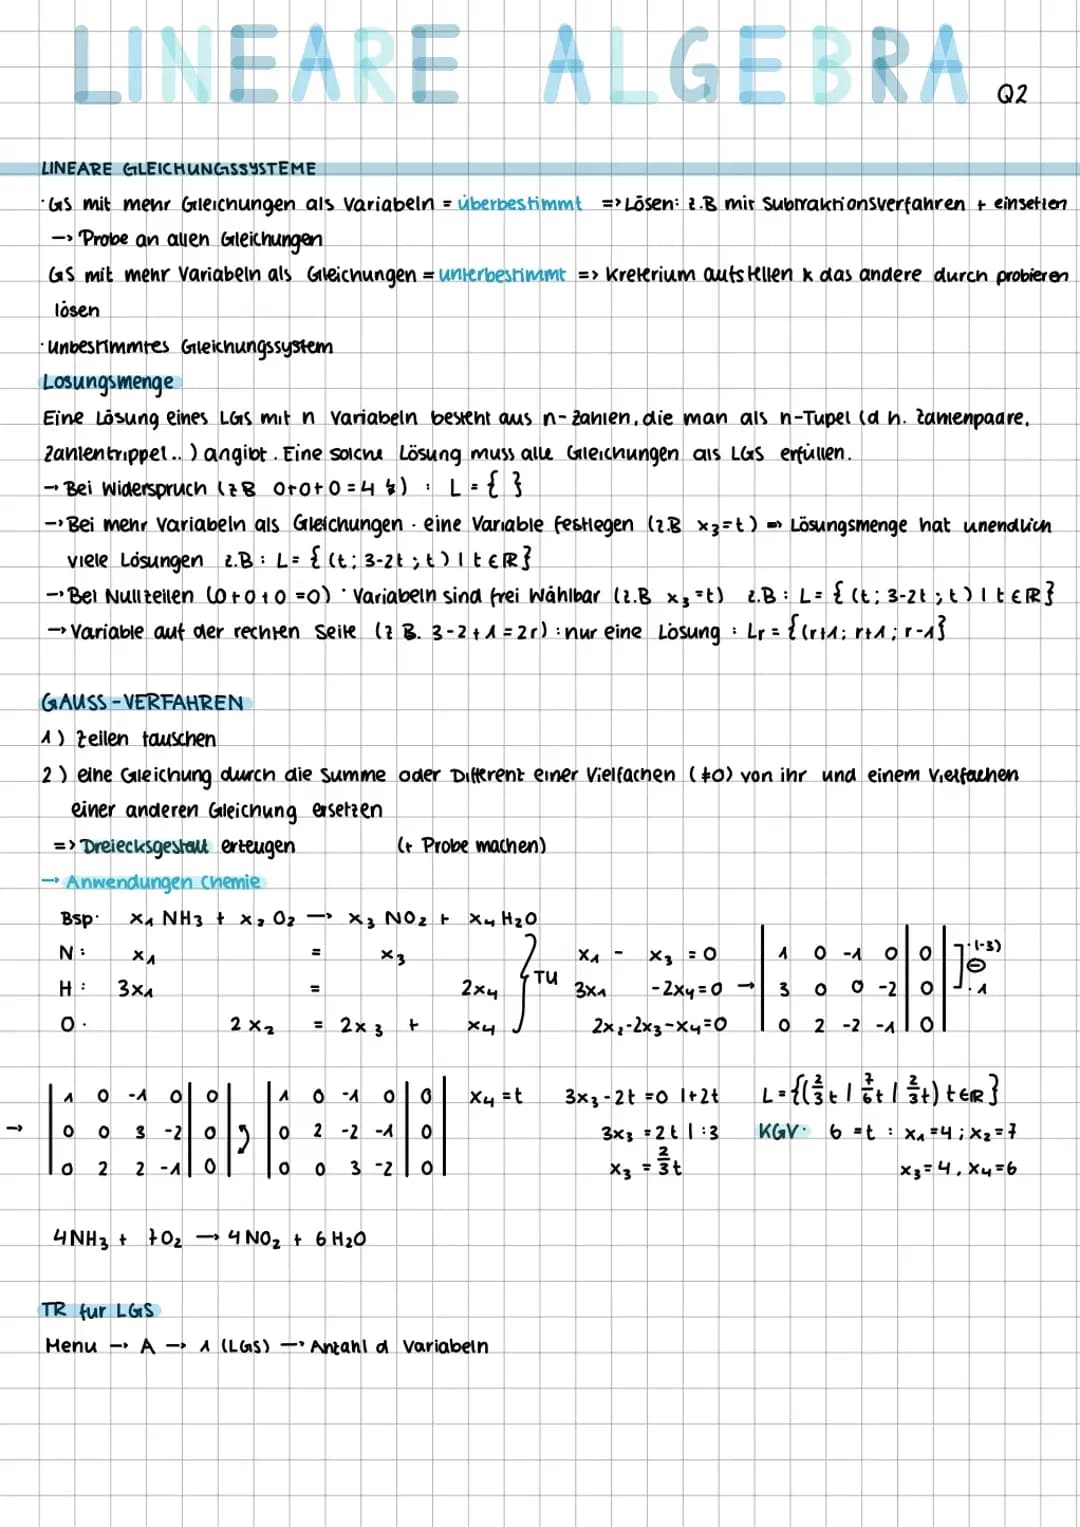 LINEARE ALGEBRA Q2
LINEARE GLEICHUNGSSYSTEME
·GS mit mehr Gleichungen als Variabeln = überbestimmt => Lösen: z.B mit Subtraktionsverfahren + einsetzen
→ Probe an allen Gleichungen
GS mit mehr Variabeln als Gleichungen = unterbestimmt => Kreterium aufstellen & das andere durch probieren
lösen
·Unbestimmtes Gleichungssystem
Losungsmenge
Eine Lösung eines LGS mit n Variabeln besteht aus n-Zahlen, die man als n-Tupel (d h. Zahlenpaare,
Zahlentrippel..) angibt. Eine solche Lösung muss alle Gleichungen als LGS erfüllen.
→ Bei Widerspruch (z B 0+0+0=4 ↯) : L = { }
→ Bei mehr Variabeln als Gleichungen · eine Variable festlegen (z.B x₃=t) => Lösungsmenge hat unendlich
viele Lösungen z.B : L= { (t; 3-2t ; t) | t ∈ ℝ}
→ Bei Nullzeilen (0+0+0 =0) · Variabeln sind frei Wählbar (z.B x₃=t) z.B : L= { (t; 3-2t ; t) | t ∈ ℝ}
→ Variable auf der rechten Seite (z B. 3-2+1=2r) : nur eine Lösung : Lr = {(r+1; r+1; r-1}
GAUSS-VERFAHREN
1) Zeilen tauschen
2) eine Gleichung durch die Summe oder Differenz einer Vielfachen (≠0) von ihr und einem Vielfachen
einer anderen Gleichung ersetzen
=> Dreiecksgestalt erzeugen (+ Probe machen)
→ Anwendungen Chemie
Bsp· x₁ NH₃ + x₂ O₂ → x₃ NO₂ + x₄ H₂O
N: x₁ = x₃ x₁ - x₃ = 0 | 1 0 -1 0 | 0 | ·(-3)
H: 3x₁ = 2x₄ } TU 3x₁ -2x₄=0 → | 3 0 0 -2 | 0 | ⊖ ·1
O· 2x₂ = 2x₃ + x₄ 2x₂-2x₃-x₄=0 | 0 2 -2 -1 | 0 |
| 1 0 -1 0 | 0 | | 1 0 -1 0 | 0 | x₄=t 3x₃-2t=0 |+2t L={(2/3 t | 7/6 t | 2/3 t) t∈ℝ}
→ | 0 0 3 -2 | 0 | | 0 2 -2 -1 | 0 | 3x₃ =2t |:3 KGV· 6 =t : x₁=4; x₂=7
| 0 2 2 -1 | 0 | | 0 0 3 -2 | 0 | x₃ = 2/3 t x₃=4, x₄=6
4NH₃ + 7O₂ → 4NO₂ + 6H₂O
TR fur LGS
Menu → A → 1 (LGS) → Anzahl d Variabeln